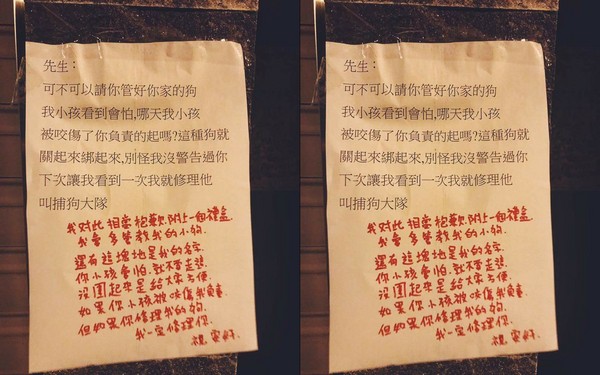 先生：
可不可以請你管好你家的狗
我小孩看到會怕,哪天我小孩
被咬傷了你負責的起嗎?這種狗就
關起來綁起來,別怪我沒警告過你
下次讓我看到一次我就修理他
叫捕狗大隊
我对此 相當抱歉.附上一個禮盒.
我會 多管教我的小狗.
還有這塊地是我的名字.
你小孩會怕.就不會走裝.
沒圍起來是給大家方便.
如果你小孩被咬傷我負責.
但如果你修理我的狗.
我一定修理你.
祝 安好.
先生：
可不可以請你管好你家的狗
我小孩看到會怕,哪天我小孩
被咬傷了你負責的起嗎?這種狗就
關起來綁起來,別怪我沒警告過你
下次讓我看到一次我就修理他
叫捕狗大隊
我对此 相當抱歉.附上一個禮盒.
我會 多管教我的小狗.
還有這塊地是我的名字.
你小孩會怕.就不會走裝.
沒圍起來是給大家方便.
如果你小孩被咬傷我負責.
但如果你修理我的狗.
我一定修理你.
祝 安好.